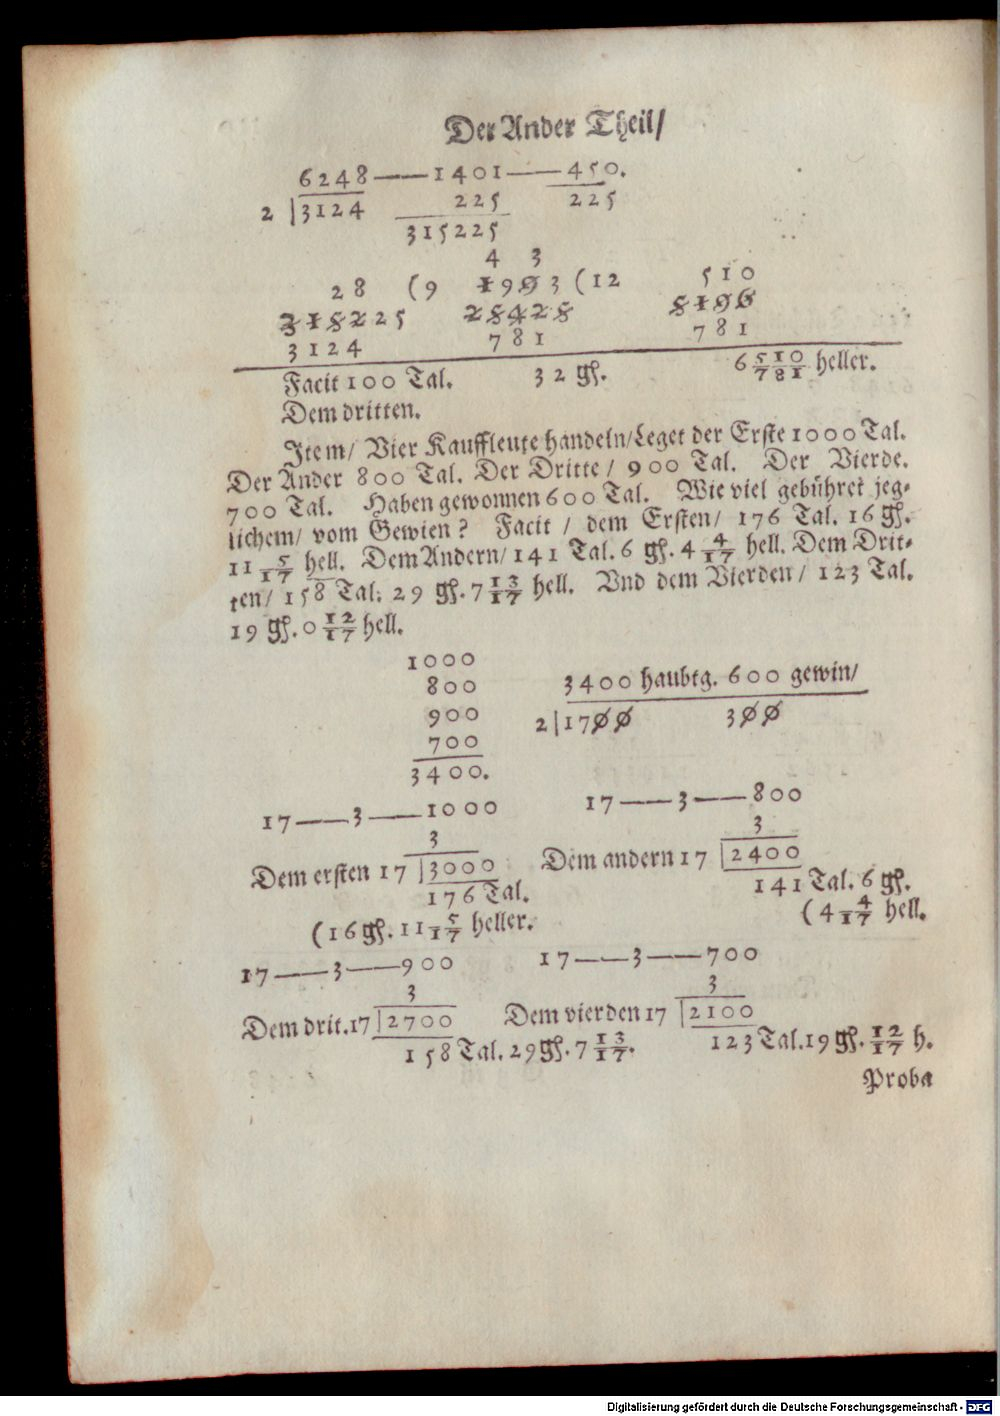 Der Ander Theil/
6248——1401——450.
2 |3124 225 225
315225
4 3
28 (9 1993 (12 510
318225 28428 8196
3124 781 781
Facit 100 Tal. 32 gß. 6 510/781 heller.
Dem dritten.
Item/ Vier Kauffleute handeln/Leget der Erste 1000 Tal.
Der Ander 800 Tal. Der Dritte/ 900 Tal. Der Vierde.
700 Tal. Haben gewonnen 600 Tal. Wie viel gebühret jeg-
lichem/ vom Gewien? Facit/ dem Ersten/ 176 Tal. 16 gß.
11 5/17 hell. Dem Andern/ 141 Tal. 6 gß. 4 4/17 hell. Dem Drit-
ten/ 158 Tal. 29 gß. 7 13/17 hell. Vnd dem Vierden/ 123 Tal.
19 gß. 0 12/17 hell.
1000
800
900
700
3400.
3400 haubtg. 600 gewin/
2|1700 300
17——3——1000
3
Dem ersten 17 |3000
176 Tal.
(16 gß. 11 5/17 heller.
17——3——800
3
Dem andern 17 |2400
141 Tal. 6 gß.
(4 4/17 hell.
17——3——900
3
Dem drit. 17 |2700
158 Tal. 29 gß. 7 13/17.
17——3——700
3
Dem vierden 17 |2100
123 Tal. 19 gß. 12/17 h.
Proba
Digitalisierung gefördert durch die Deutsche Forschungsgemeinschaft - DFG